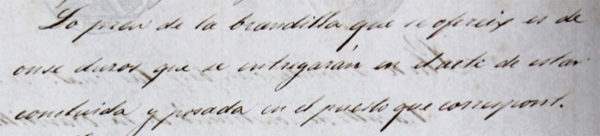 Lo preu de la brandilla que se ofereix es de
onse duros que se entregarán en el acte de estar
concluida y posada en el puesto que correspont.